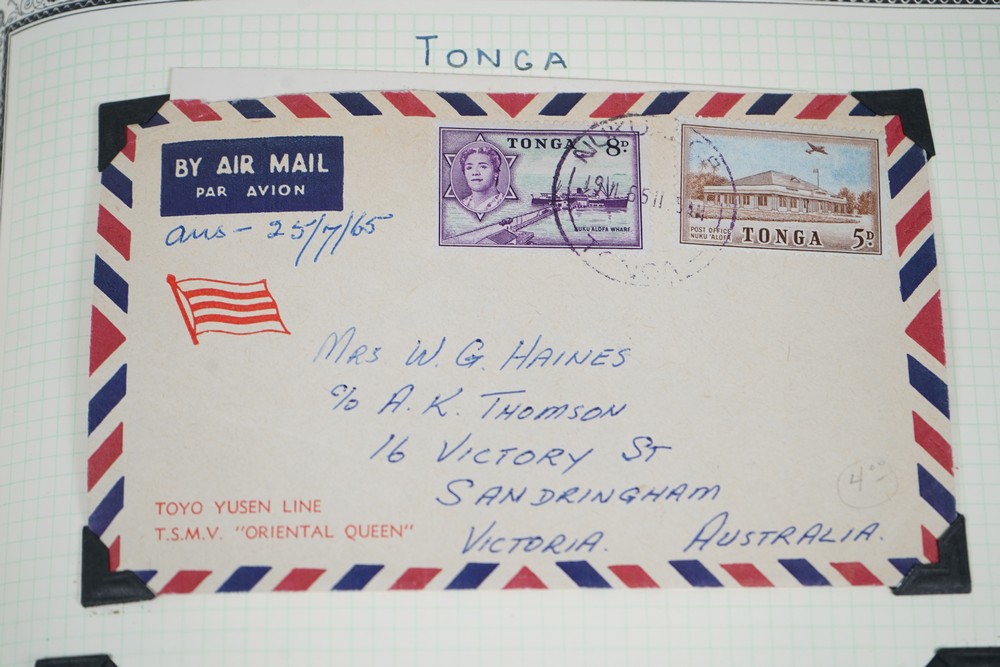 TONGA
BY AIR MAIL
PAR AVION
ans - 25/7/65
TONGA 8D
NUKU'ALOFA WHARF.
POST OFFICE
NUKU'ALOFA
TONGA 5D
MRS W. G. HAINES
c/o A. K. THOMSON
16 VICTORY ST
SANDRINGHAM
VICTORIA. AUSTRALIA.
TOYO YUSEN LINE
T.S.M.V. "ORIENTAL QUEEN"
4.00